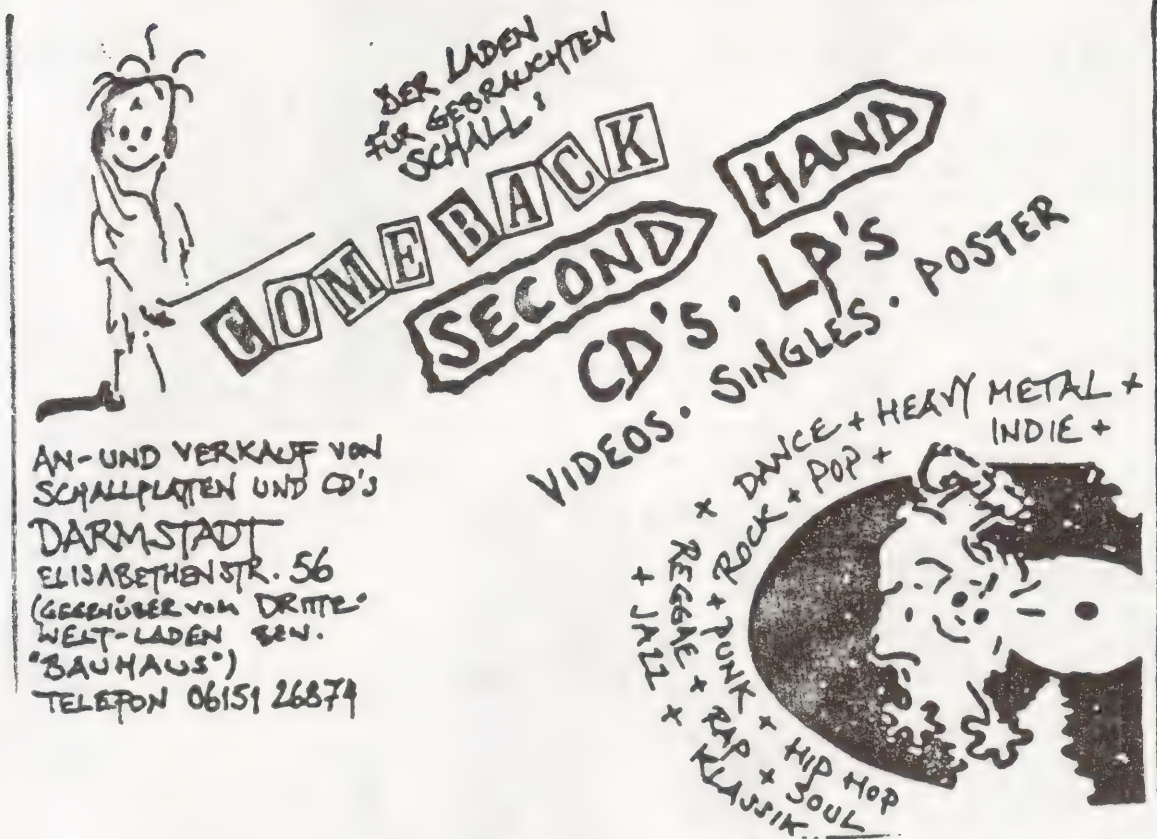 DER LADEN
FÜR GEBRAUCHTEN
SCHALL:
COME BACK
SECOND HAND
CD'S · LP'S
VIDEOS · SINGLES · POSTER
AN- UND VERKAUF VON
SCHALLPLATTEN UND CD'S
DARMSTADT
ELISABETHENSTR. 56
(GEGENÜBER VOM DRITTE-
WELT-LADEN BZW.
"BAUHAUS")
TELEFON 06151 26874
+ DANCE + HEAVY METAL +
INDIE +
+ ROCK + POP +
+ PUNK + HIP HOP
REGGAE + RAP + SOUL
+ JAZZ + KLASSIK...